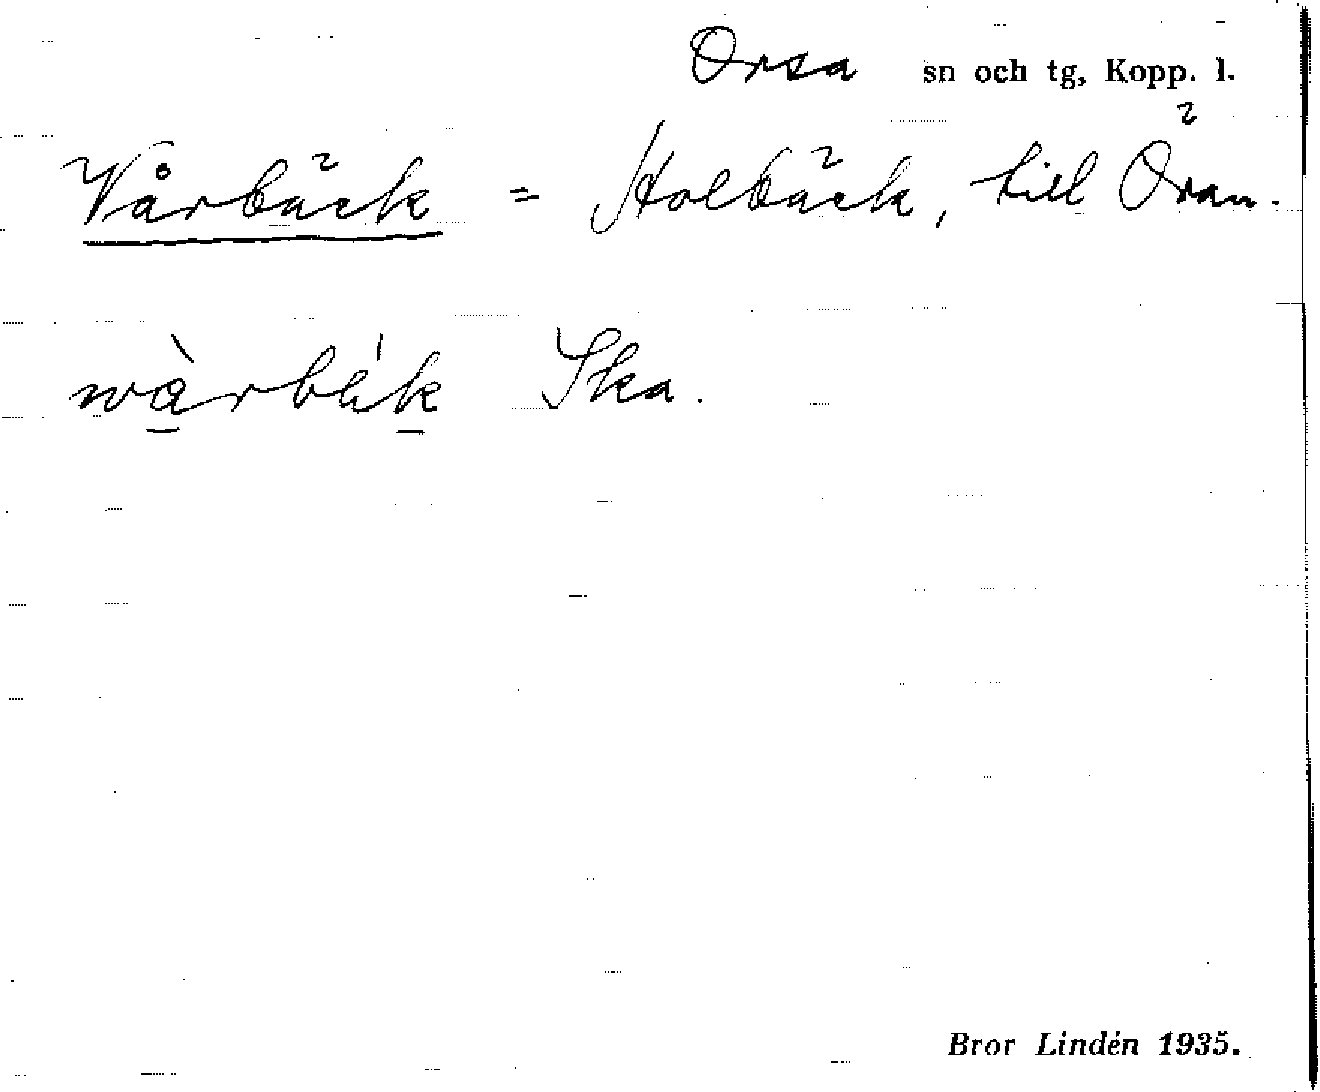 Orsa sn och tg, Kopp. l.
Vårbäck = Holbäck, till Öran.
wàrbék Ska.
Bror Lindén 1935.